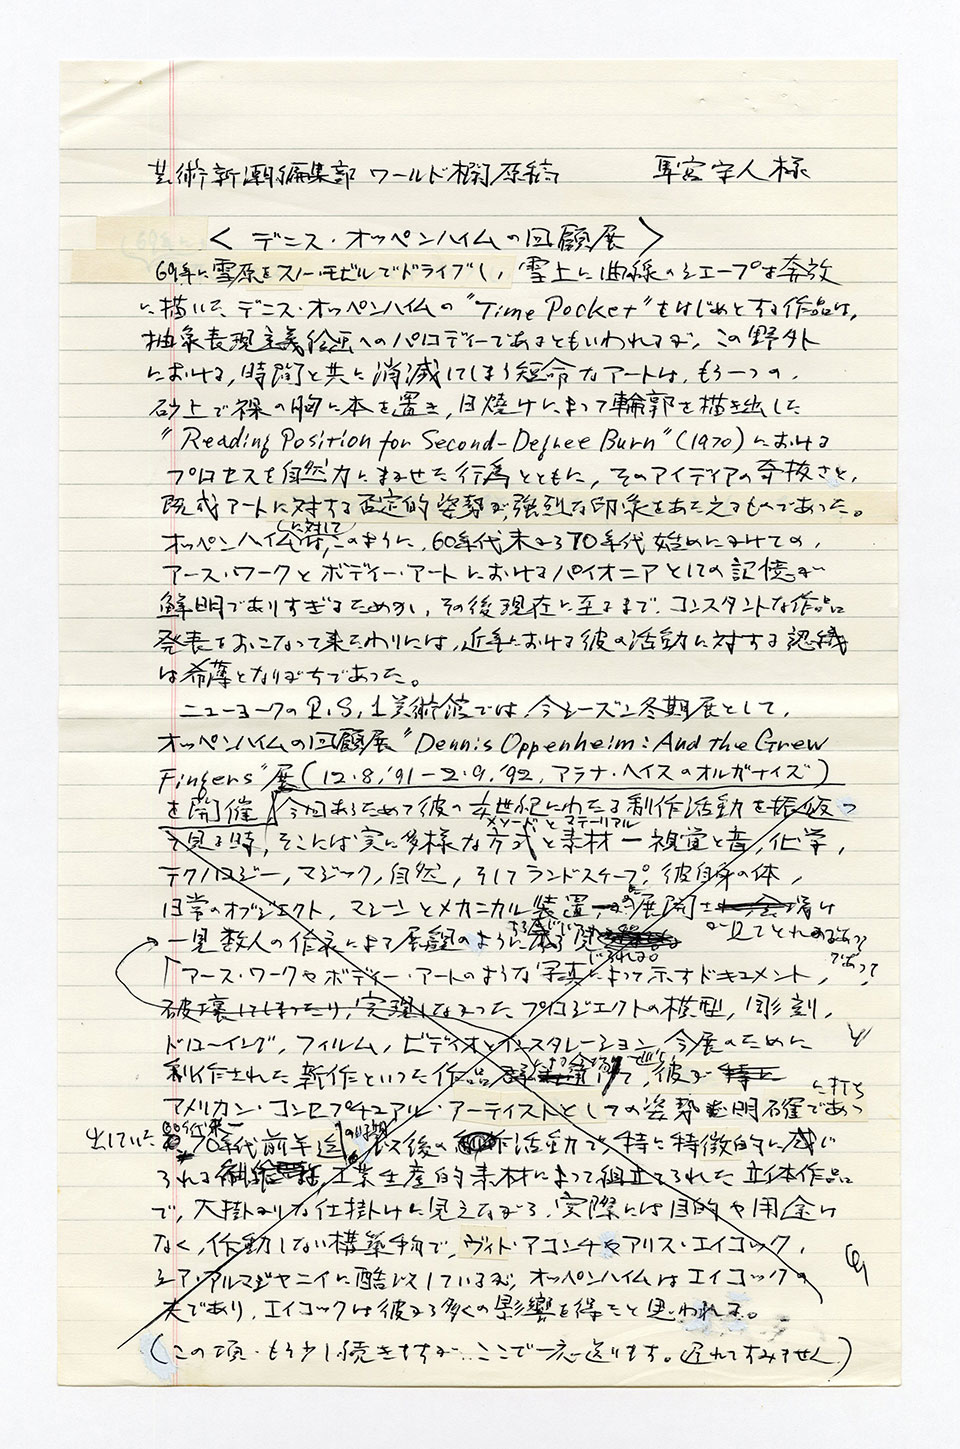 芸術新潮編集部 ワールド欄原稿 馬宮守人様
〈デニス・オッペンハイムの回顧展〉
69年に雪原をスノーモビルでドライブし、雪上に曲線のシェープを奔放
に描いた、デニス・オッペンハイムの"Time Pocket"をはじめとする作品は、
抽象表現主義絵画へのパロディーであるともいわれるが、この野外
における、時間と共に消滅してしまう短命なアートは、もう一つの、
砂上で裸の胸に本を置き、日焼けによって輪郭を描き出した
"Reading Position for Second-Degree Burn"(1970)における
プロセスを自然力にまかせた行為とともに、そのアイディアの奇抜さと、
既成アートに対する否定的姿勢が、強烈な印象をあたえるものであった。
に対して
オッペンハイムは、このように、60年代末から70年代始めにかけての、
アース・ワークとボディー・アートにおけるパイオニアとしての記憶が
鮮明でありすぎるためか、その後現在に至るまで、コンスタントな作品に
発表をおこなって来たわりには、近年における彼の活動に対する認識
は希薄となりがちであった。
ニューヨークのP.S.1美術館では、今シーズン冬期展として、
オッペンハイムの回顧展"Dennis Oppenheim: And the Grew
Fingers"展(12.8,'91-2.9,'92, アラナ・ヘイスのオルガナイズ)
を開催 今回あらためて彼の 世紀にわたる制作活動を振返っ
メソードとマテーリアル
て見る時、そこには実に多様な方式と素材ー視覚と音、化学、
テクノロジー、マジック、自然、そしてランドスケープ、彼自身の体、
日常のオブジェクト、マシーンとメカニカル装置 展開
一見数人の作家によって展観のように
「アース・ワークやボディー・アートのような写真によって示すドキュメント、
破壊してしまったり、実現しなかったプロジェクトの模型、彫刻、
ドローイング、フィルム、ビディオとインスタレーション、今展のために
制作された新作といった作品 彼が
に打ち
アメリカン・コンセプチュアル・アーティストとしての姿勢も明確であっ
出していた 70年代前半迄 以後の 活動で、特に特徴的に感じ
られる 工業生産的素材によって組立てられた立体作品
で、大掛かりな仕掛けに見えながら、実際には目的や用途は
なく、作動しない構築物で、ヴィト・アコンチやアリス・エイコック、
シア・アルマジャニイに酷似しているが、オッペンハイムはエイコックの
夫であり、エイコックは彼から多くの影響を得たと思われる。
(この項、もう少し続きますが、ここで一応送ります。遅れてすみません)